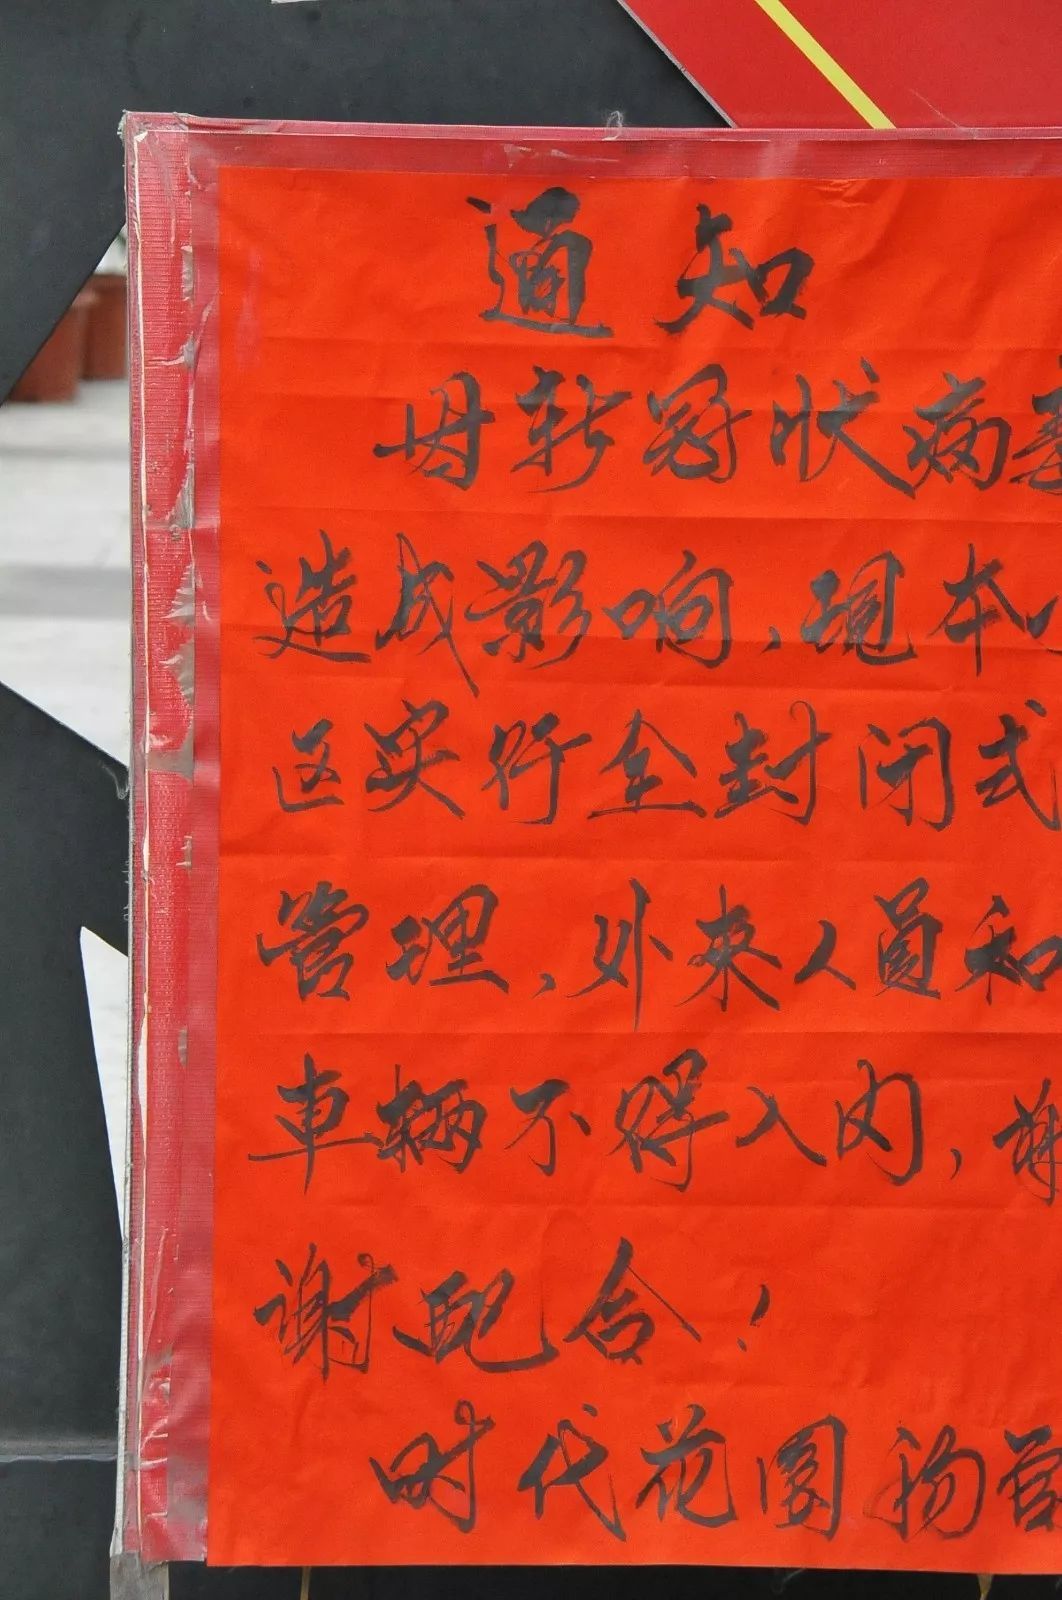 通知
因新冠状病毒
造成影响，现本小
区实行全封闭式
管理，外来人员和
車辆不得入内，谢
谢配合！
时代花园物管